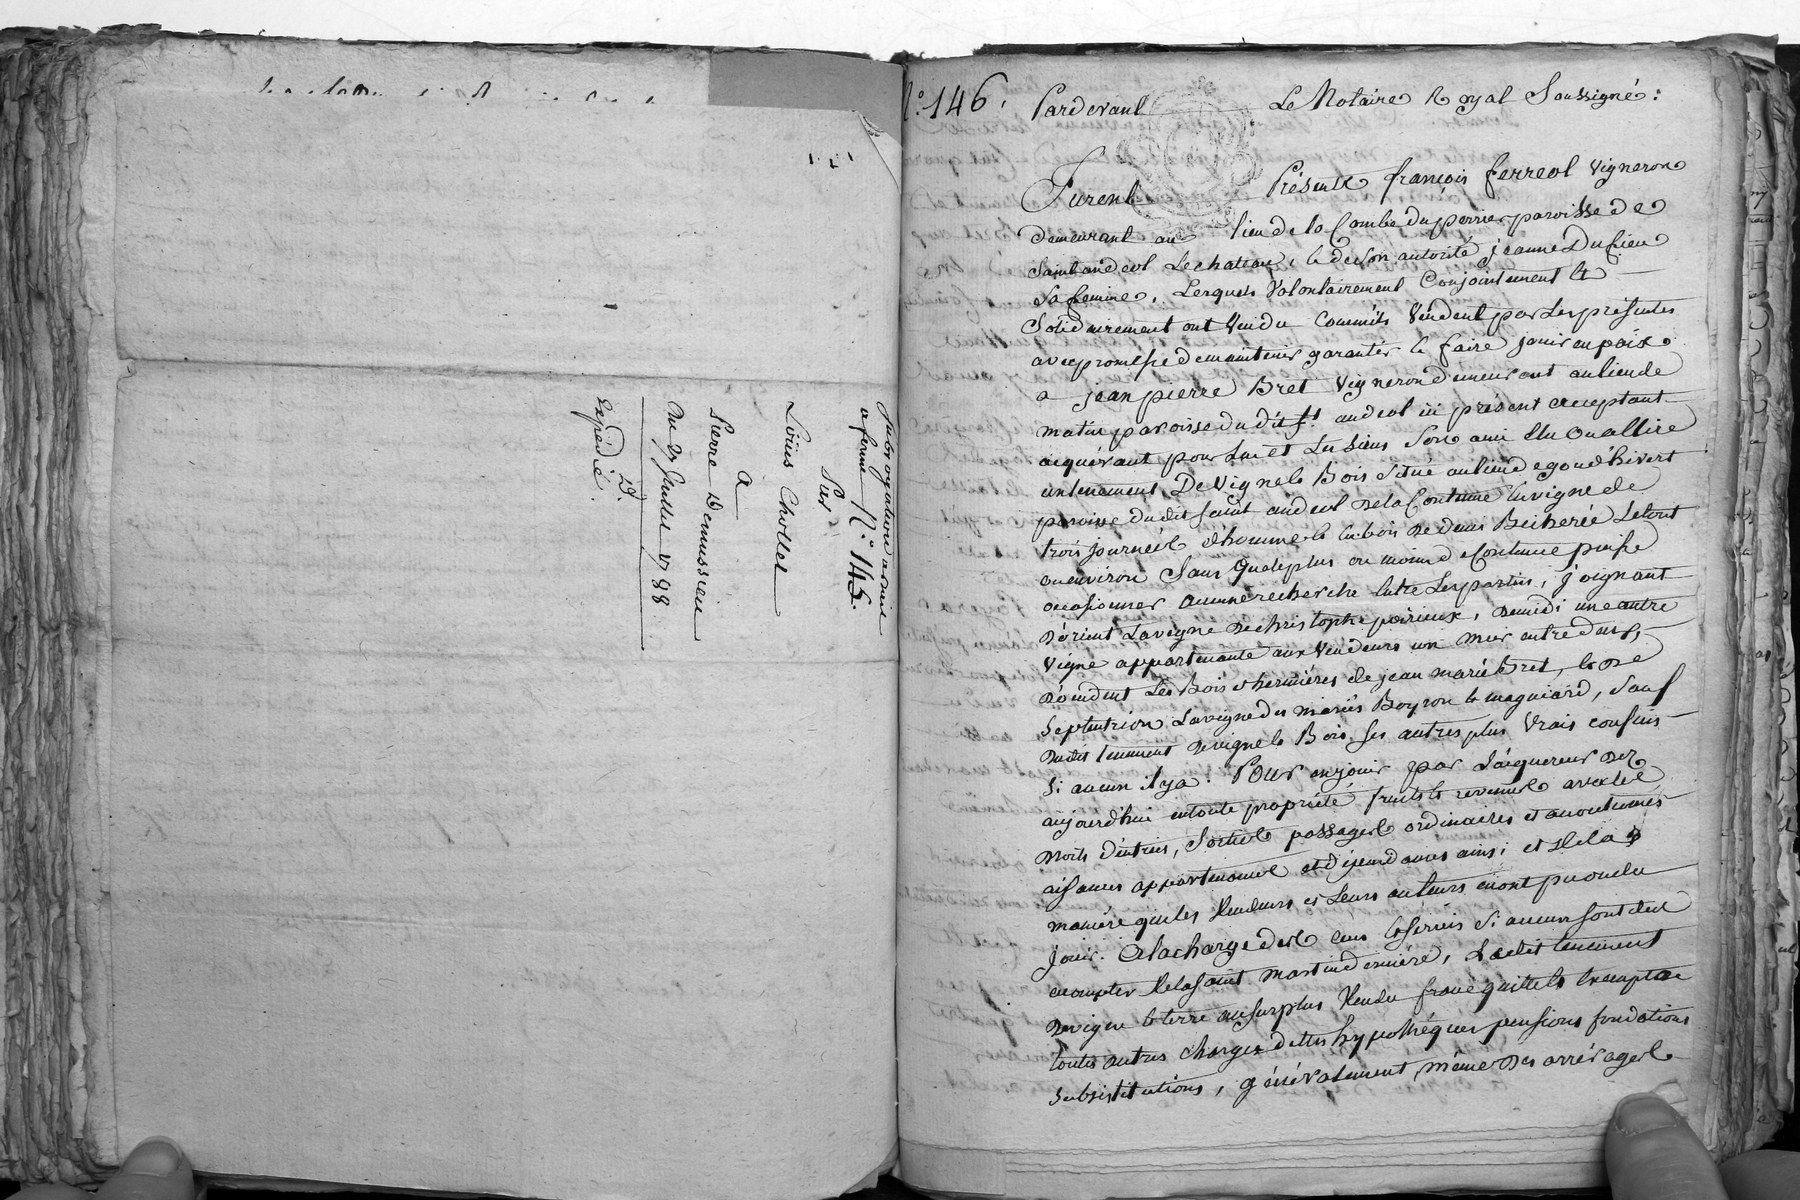 Subrogation a droit
a forme N.° 145.
Sur
Louis Chollet
a
Pierre Demussieu
Du 21 Juillet 1788
Expédié.
N.° 146.
Pardevant Le Notaire Royal Soussigné :
Furent Présents françois ferreol vigneron
demeurant au lieu de la Combe du perrier paroisse de
Saint andeol Le chateau, & de son autorité jeanne Dufieu
Sa femme, Lesquels Volontairement Conjointement &
Solidairement ont Vendu Comme ils Vendent par Les présentes
avec promesse de maintenir garantir & faire jouir en paix
a jean pierre Bret Vigneron demeurant au lieu de
paroisse dudit St. andeol ici présent acceptant
acquérant pour Lui et Les Siens Son ami Elu ou a Elire
un tenement De Vigne & Bois Situé au lieu de
paroisse dudit Saint andeol De la Contenue La vigne de
trois journées d'homme & Le bois De deux Bicherée Le tout
ou environ Sans que le plus ou moins de Contenue puisse
occasionner aucune recherche Entre Les parties, joignant
D'orient La vigne De christophe poirieux, De midi une autre
Vigne appartenante aux Vendeurs un mur entre deux,
D'occident Les Bois & hermières de jean marie Bret, & De
Septentrion La vigne des mariés Boyron & magniard, Sauf
Dudit tenement De vigne & Bois Ses autres plus Vrais confins
Si aucun il y a. Pour en jouir par L'acquereur Dez
aujourd'hui en toute propriété fruits & revenus avec Les
Droits d'entrées, Sorties passages ordinaires et accoutumés
aisances appartenances et dépendances ainsi et De la
manière que les Vendeurs et Leurs auteurs en ont pu ou du
jouir. A la charge des cens & servis Si aucun sont dus
a compter De la Saint martin dernière, Ledit tenement
De vigne & terre au Surplus Vendu franc quitte & Exempt de
toutes autres charges dettes hypothéques pensions fondations
Substitutions, généralement, même Des arrérages